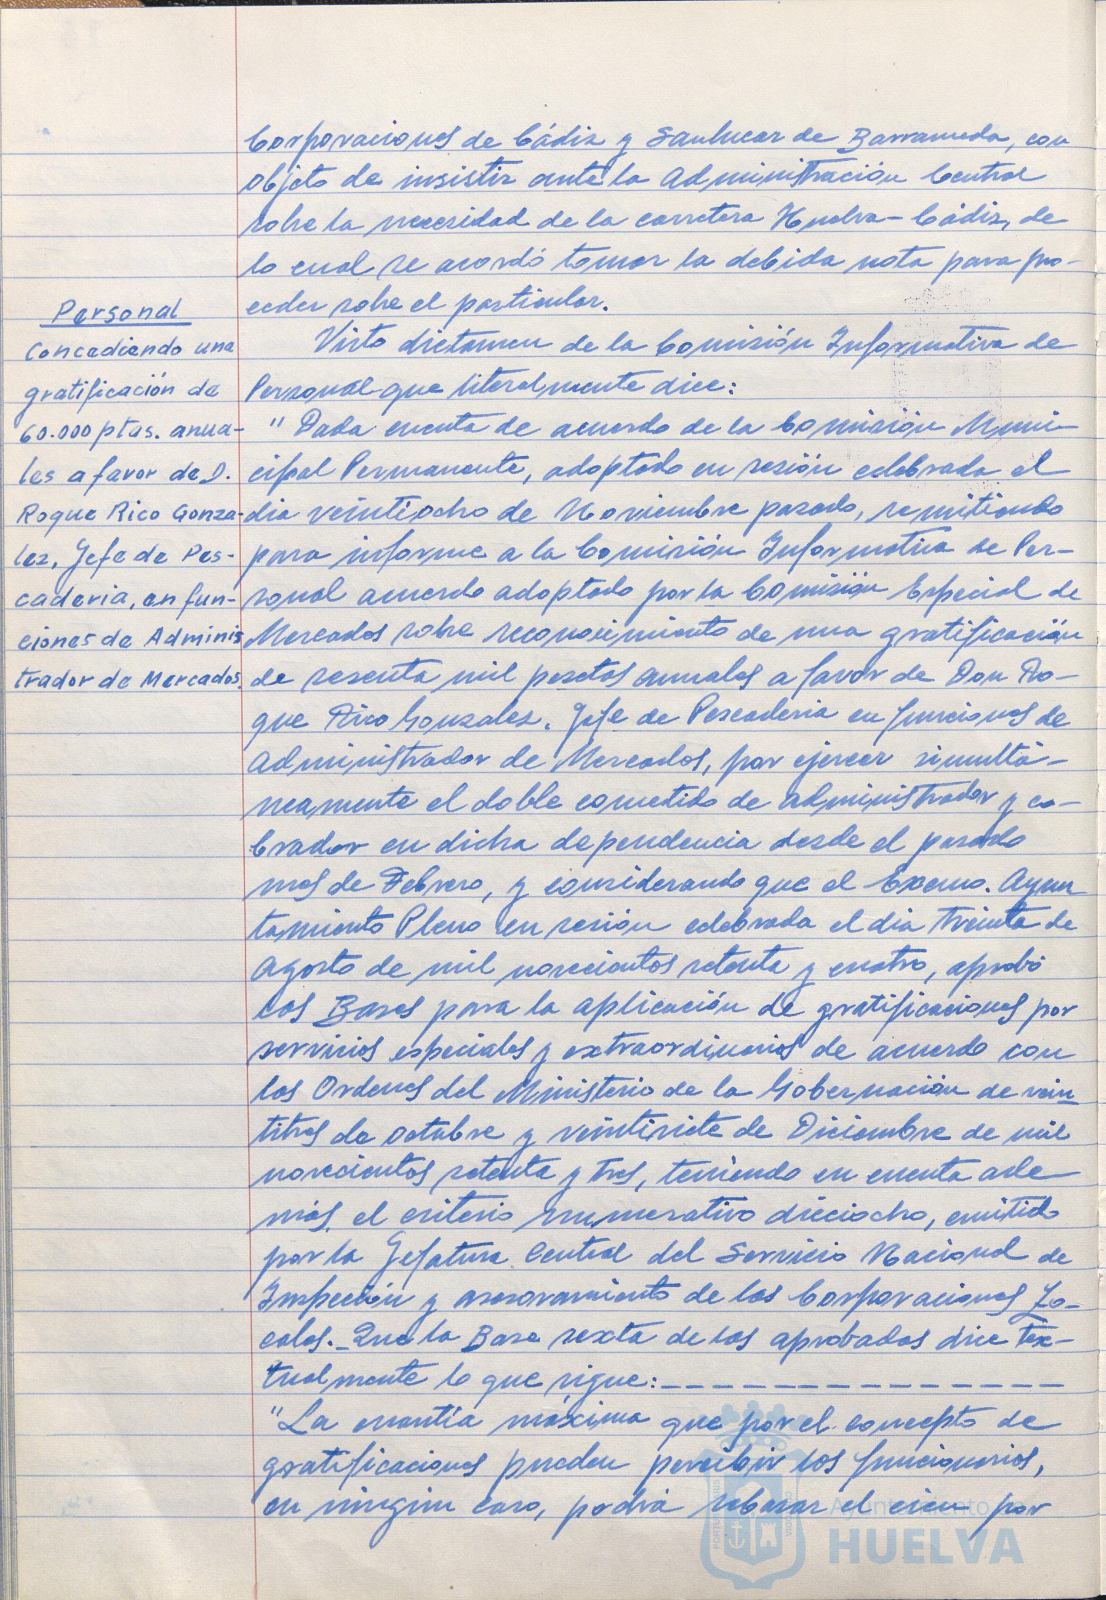 Corporaciones de Cádiz y Sanlucar de Barrameda, con
objeto de insistir ante la Administración Central
sobre la necesidad de la carretera Huelva-Cádiz, de
lo cual se acordó tomar la debida nota para pro-
ceder sobre el particular.
Personal
Concediendo una
gratificación de
60.000 ptas. anua-
les a favor de D.
Roque Rico Gonza-
lez, Jefe de Pes-
caderia, en fun-
ciones de Adminis
trador de Mercados.
Visto dictamen de la Comisión Informativa de
Personal que literalmente dice:
"Dada cuenta de acuerdo de la Comisión Muni-
cipal Permanente, adoptado en sesión celebrada el
dia veintiocho de Noviembre pasado, remitiendo
para informe a la Comisión Informativa de Per-
sonal acuerdo adoptado por la Comisión Especial de
Mercados sobre reconocimiento de una gratificación
de sesenta mil pesetas anuales a favor de Don Ro-
que Rico Gonzalez. Jefe de Pescaderia en funciones de
Administrador de Mercados, por ejercer simultá-
neamente el doble cometido de administrador y co-
brador en dicha dependencia desde el pasado
mes de Febrero, y considerando que el Excmo. Ayun
tamiento Pleno en sesión celebrada el dia treinta de
Agosto de mil novecientos setenta y cuatro, aprobó
las Bases para la aplicación de gratificaciones por
servicios especiales y extraordinarios de acuerdo con
las Ordenes del Ministerio de la Gobernación de vein
titres de octubre y veintisiete de Diciembre de mil
novecientos setenta y tres, teniendo en cuenta ade
más, el criterio enumerativo dieciocho, emitido
por la Jefatura Central del Servicio Nacional de
Inspección y asesoramiento de las Corporaciones Lo-
cales.- Que la Base sexta de las aprobadas dice tex-
tualmente lo que sigue:----------------
"La cuantía máxima que por el concepto de
gratificaciones pueden percibir los funcionarios,
en ningún caso, podrá rebasar el cien por
Ayuntamiento de
HUELVA